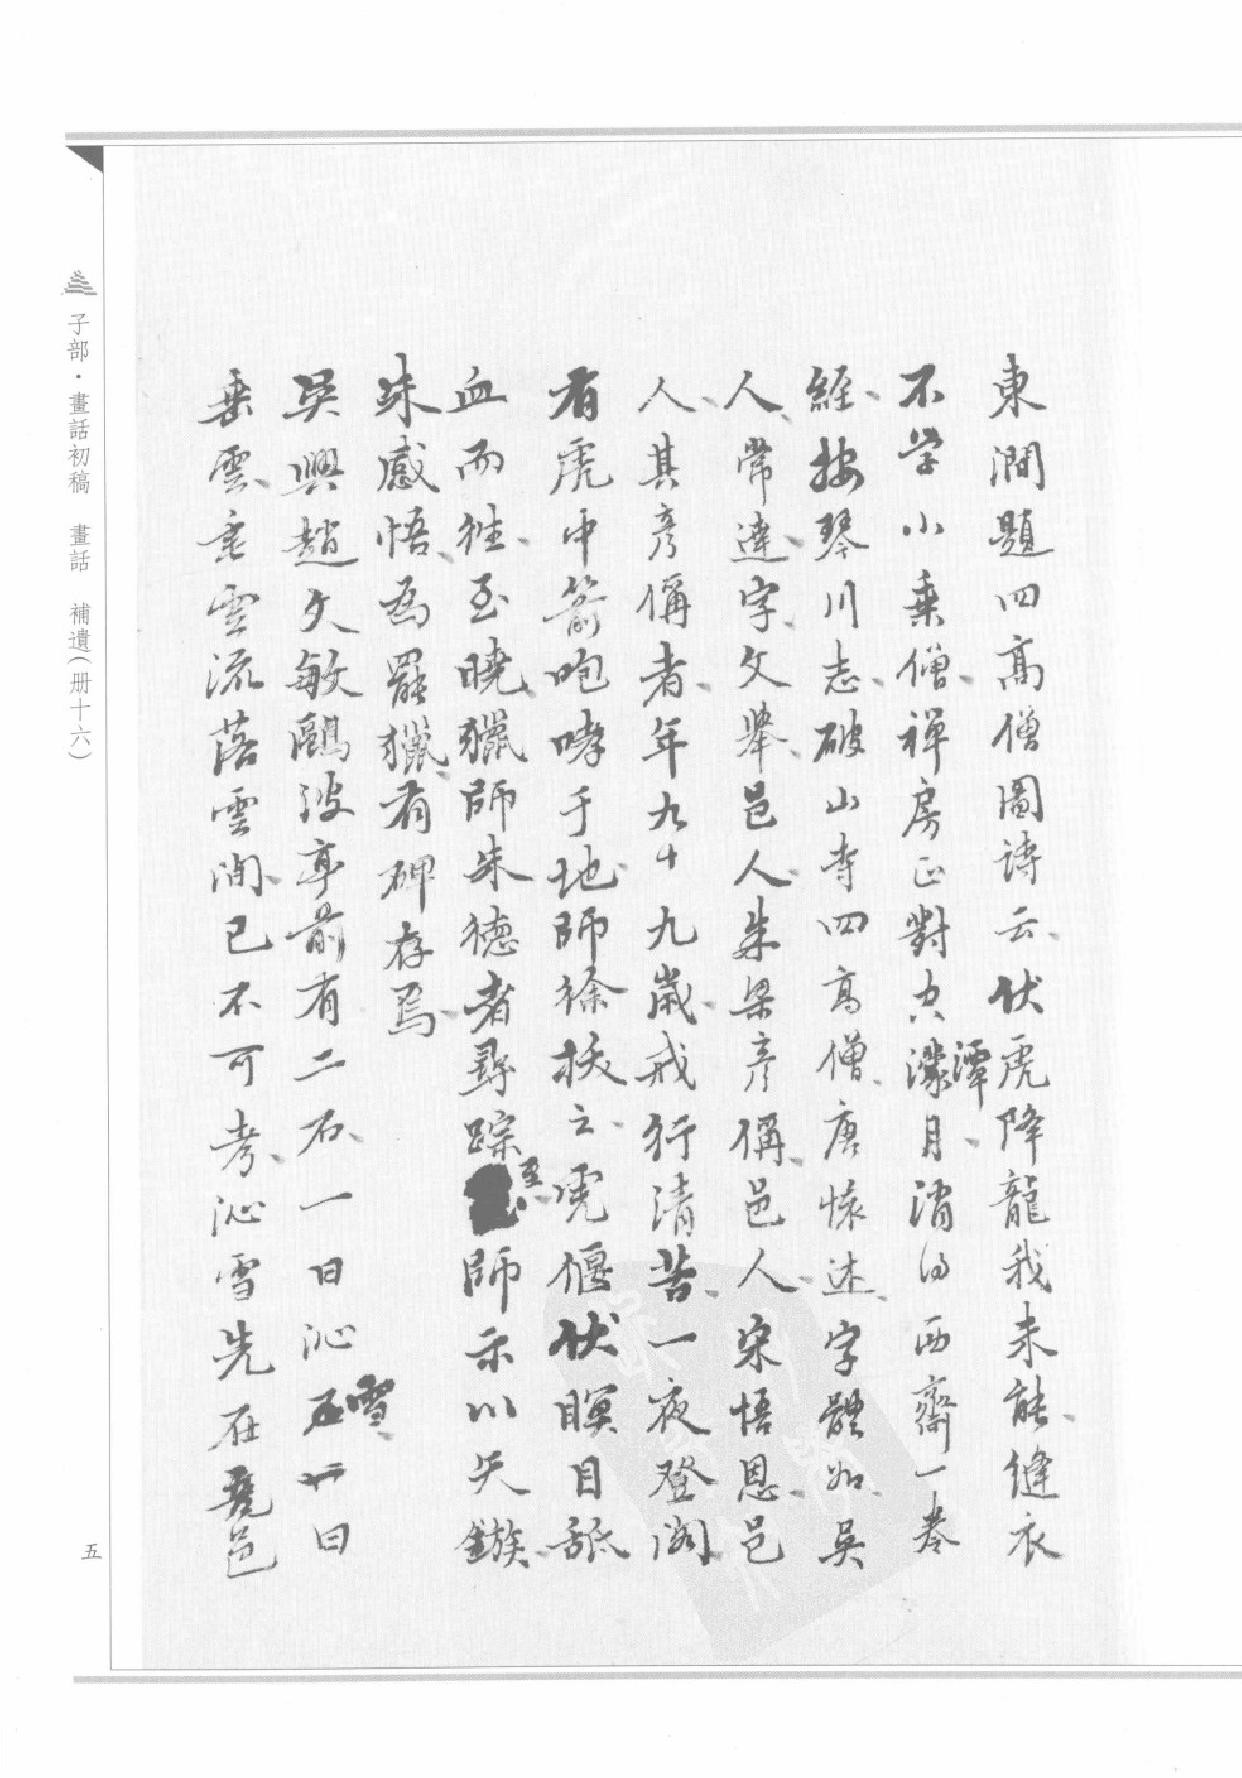 東澗題四高僧圖詩云伏虎降龍我未能縫衣
不学小乗僧禅房正對空潭月消得西齋一巻
經按琴川志破山寺四高僧唐懐述字體如吴
人常達字文舉邑人朱梁彦偁邑人宋悟恩邑
人其彦偁者年九十九歳戒行清苦一夜登閣
有虎中箭咆哮于地師徐扶之虎偃伏瞑目舐
血而徃至曉獵師朱德者尋踪至師示以矢鏃
朱感悟為罷獵有碑存焉
吴興趙文敏鷗波亭前有二石一曰沁雪一曰
垂雲垂雲流落雲间已不可考沁雪先在邑
子部·畫話初稿 畫話 補遺(册十六)
五